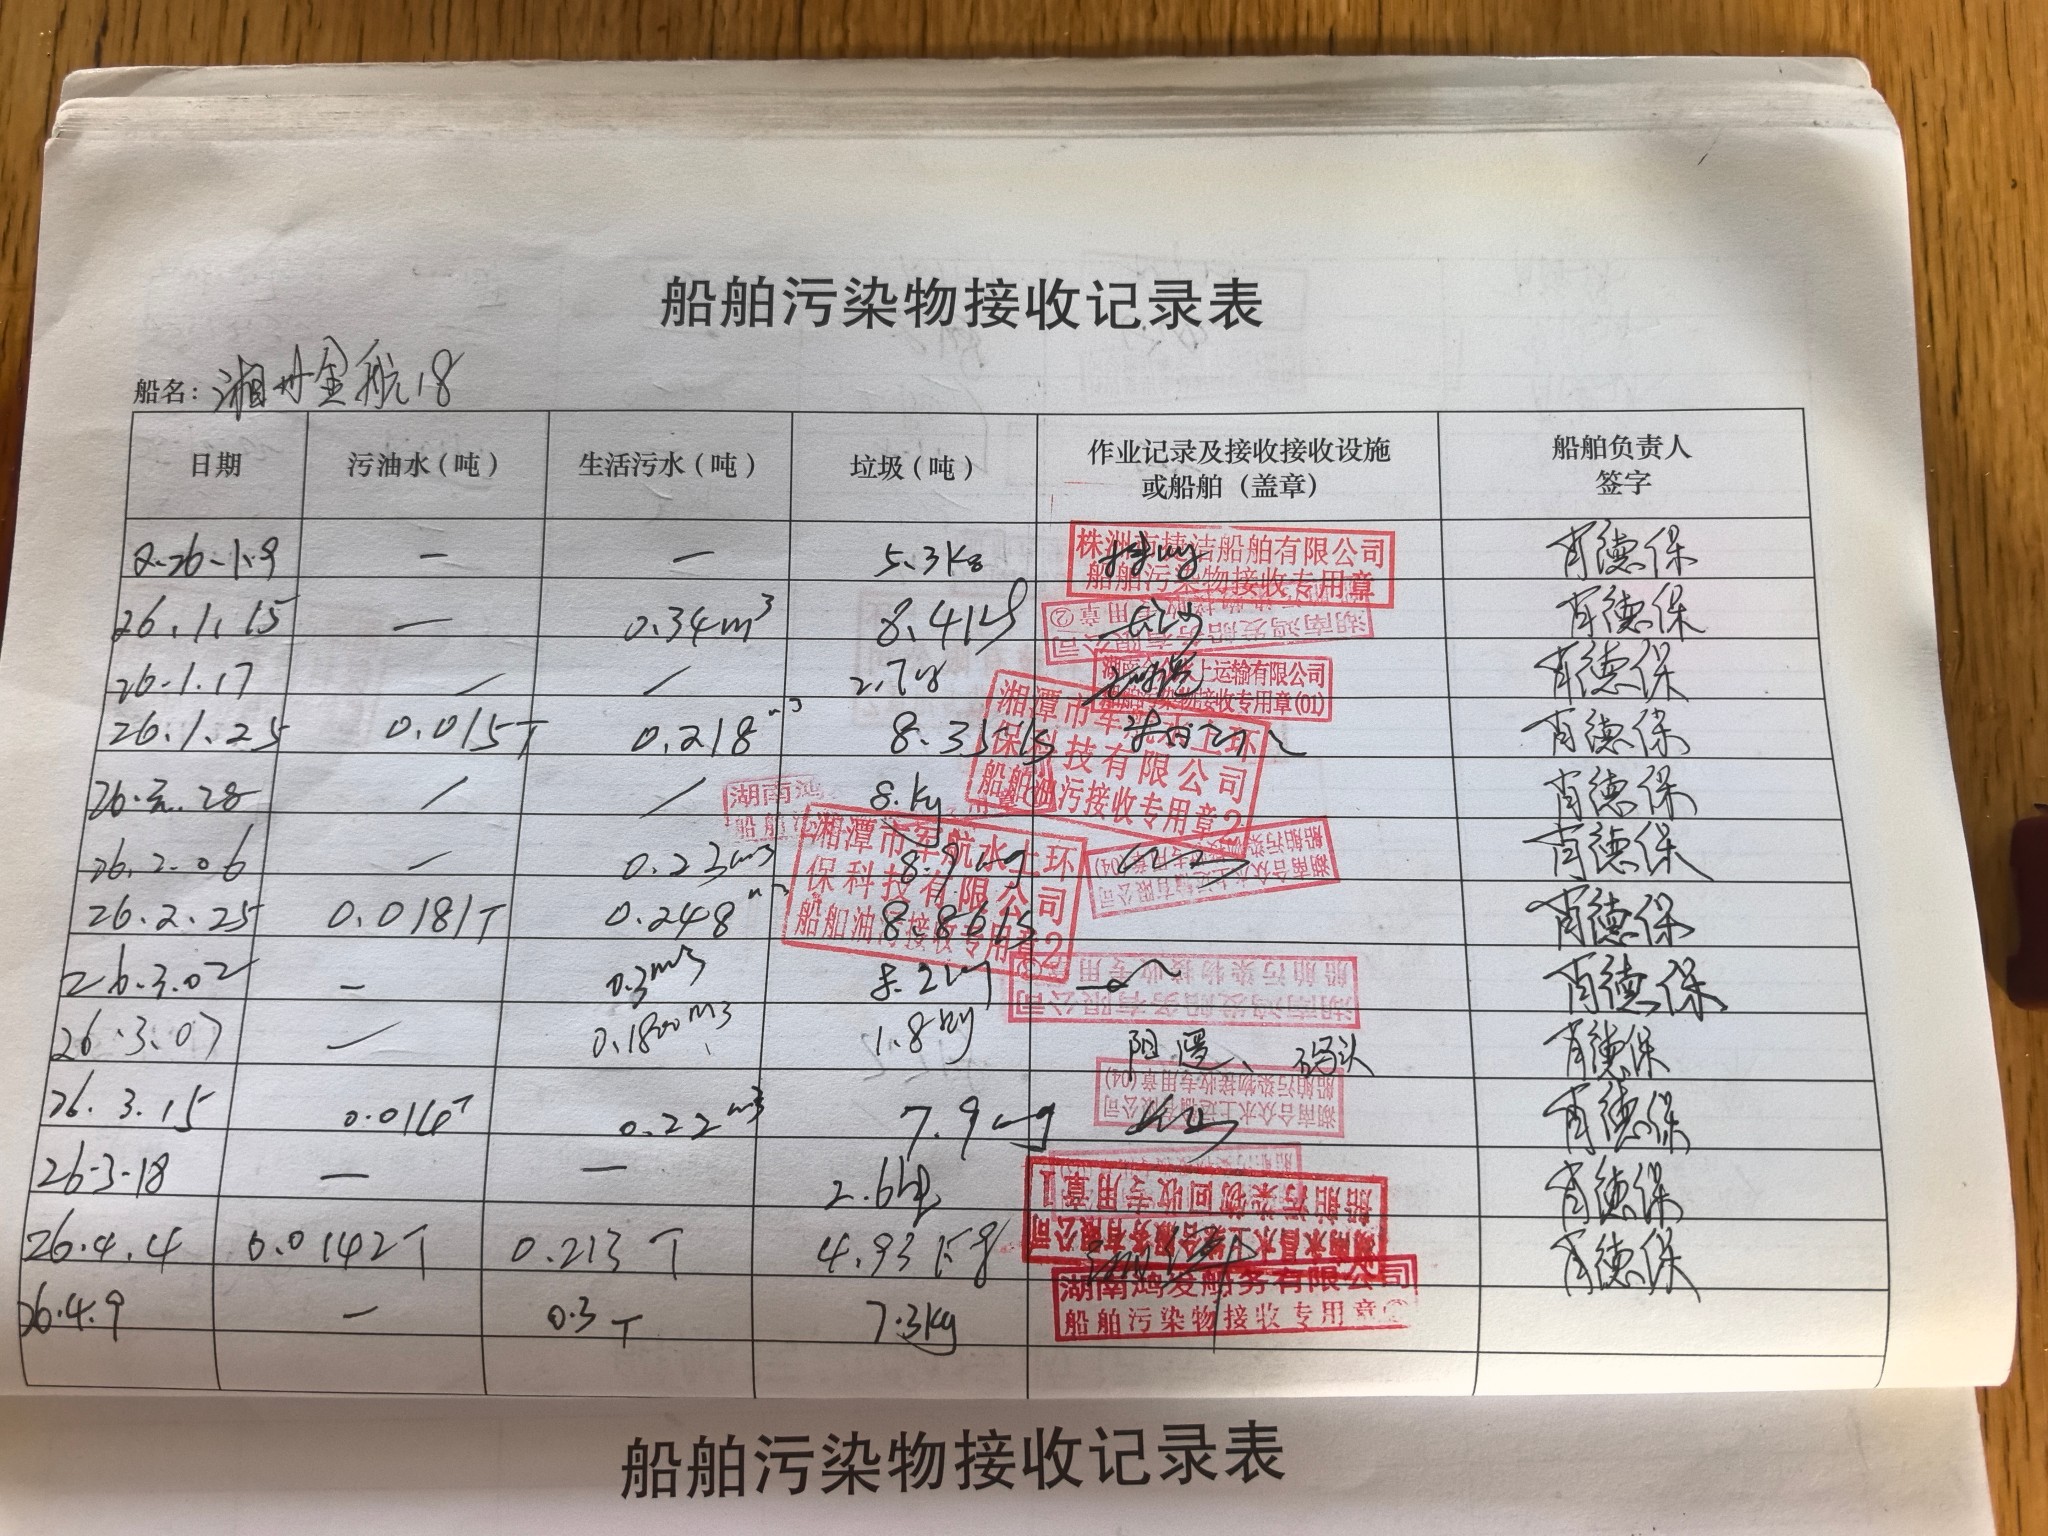 船舶污染物接收记录表
船名：湘州金航18
日期 污油水（吨） 生活污水（吨） 垃圾（吨） 作业记录及接收接收设施或船舶（盖章） 船舶负责人签字
— — 5.3Kg 株洲市捷洁船舶有限公司 船舶污染物接收专用章 肖德保
26.1.15 — 0.34m³ 长沙 肖德保
26.1.17 / / 上运输有限公司 接收专用章(01) 肖德保
26.1.25 0.015T 0.218m³ 湘潭市军航水上环保科技有限公司 船舶油污接收专用章2 肖德保
/ / 8.Kg 湖南鸿 肖德保
26.2.06 — 0.23m³ 湖南合众水上运输有限公司 船舶污染物接收专用章(04) 肖德保
26.2.25 0.0181T 0.248m³ 湘潭市军航水上环保科技有限公司 船舶油污接收专用章2 肖德保
26.3.02 — 0.3m³ 湖南鸿发船务有限公司 船舶污染物接收专用章 肖德保
26.3.07 — 1.8kg 码头 肖德保
26.3.15 0.22m³ 7.9kg 湖南合众水上运输有限公司 船舶污染物接收专用章(04) 肖德保
26-3-18 — — 肖德保
26.4.4 0.0142T 0.213T 4.93Kg 船舶污染物回收专用章1 肖德保
26.4.9 — 0.3T 7.3kg 湖南鸿发船务有限公司 船舶污染物接收专用章
船舶污染物接收记录表